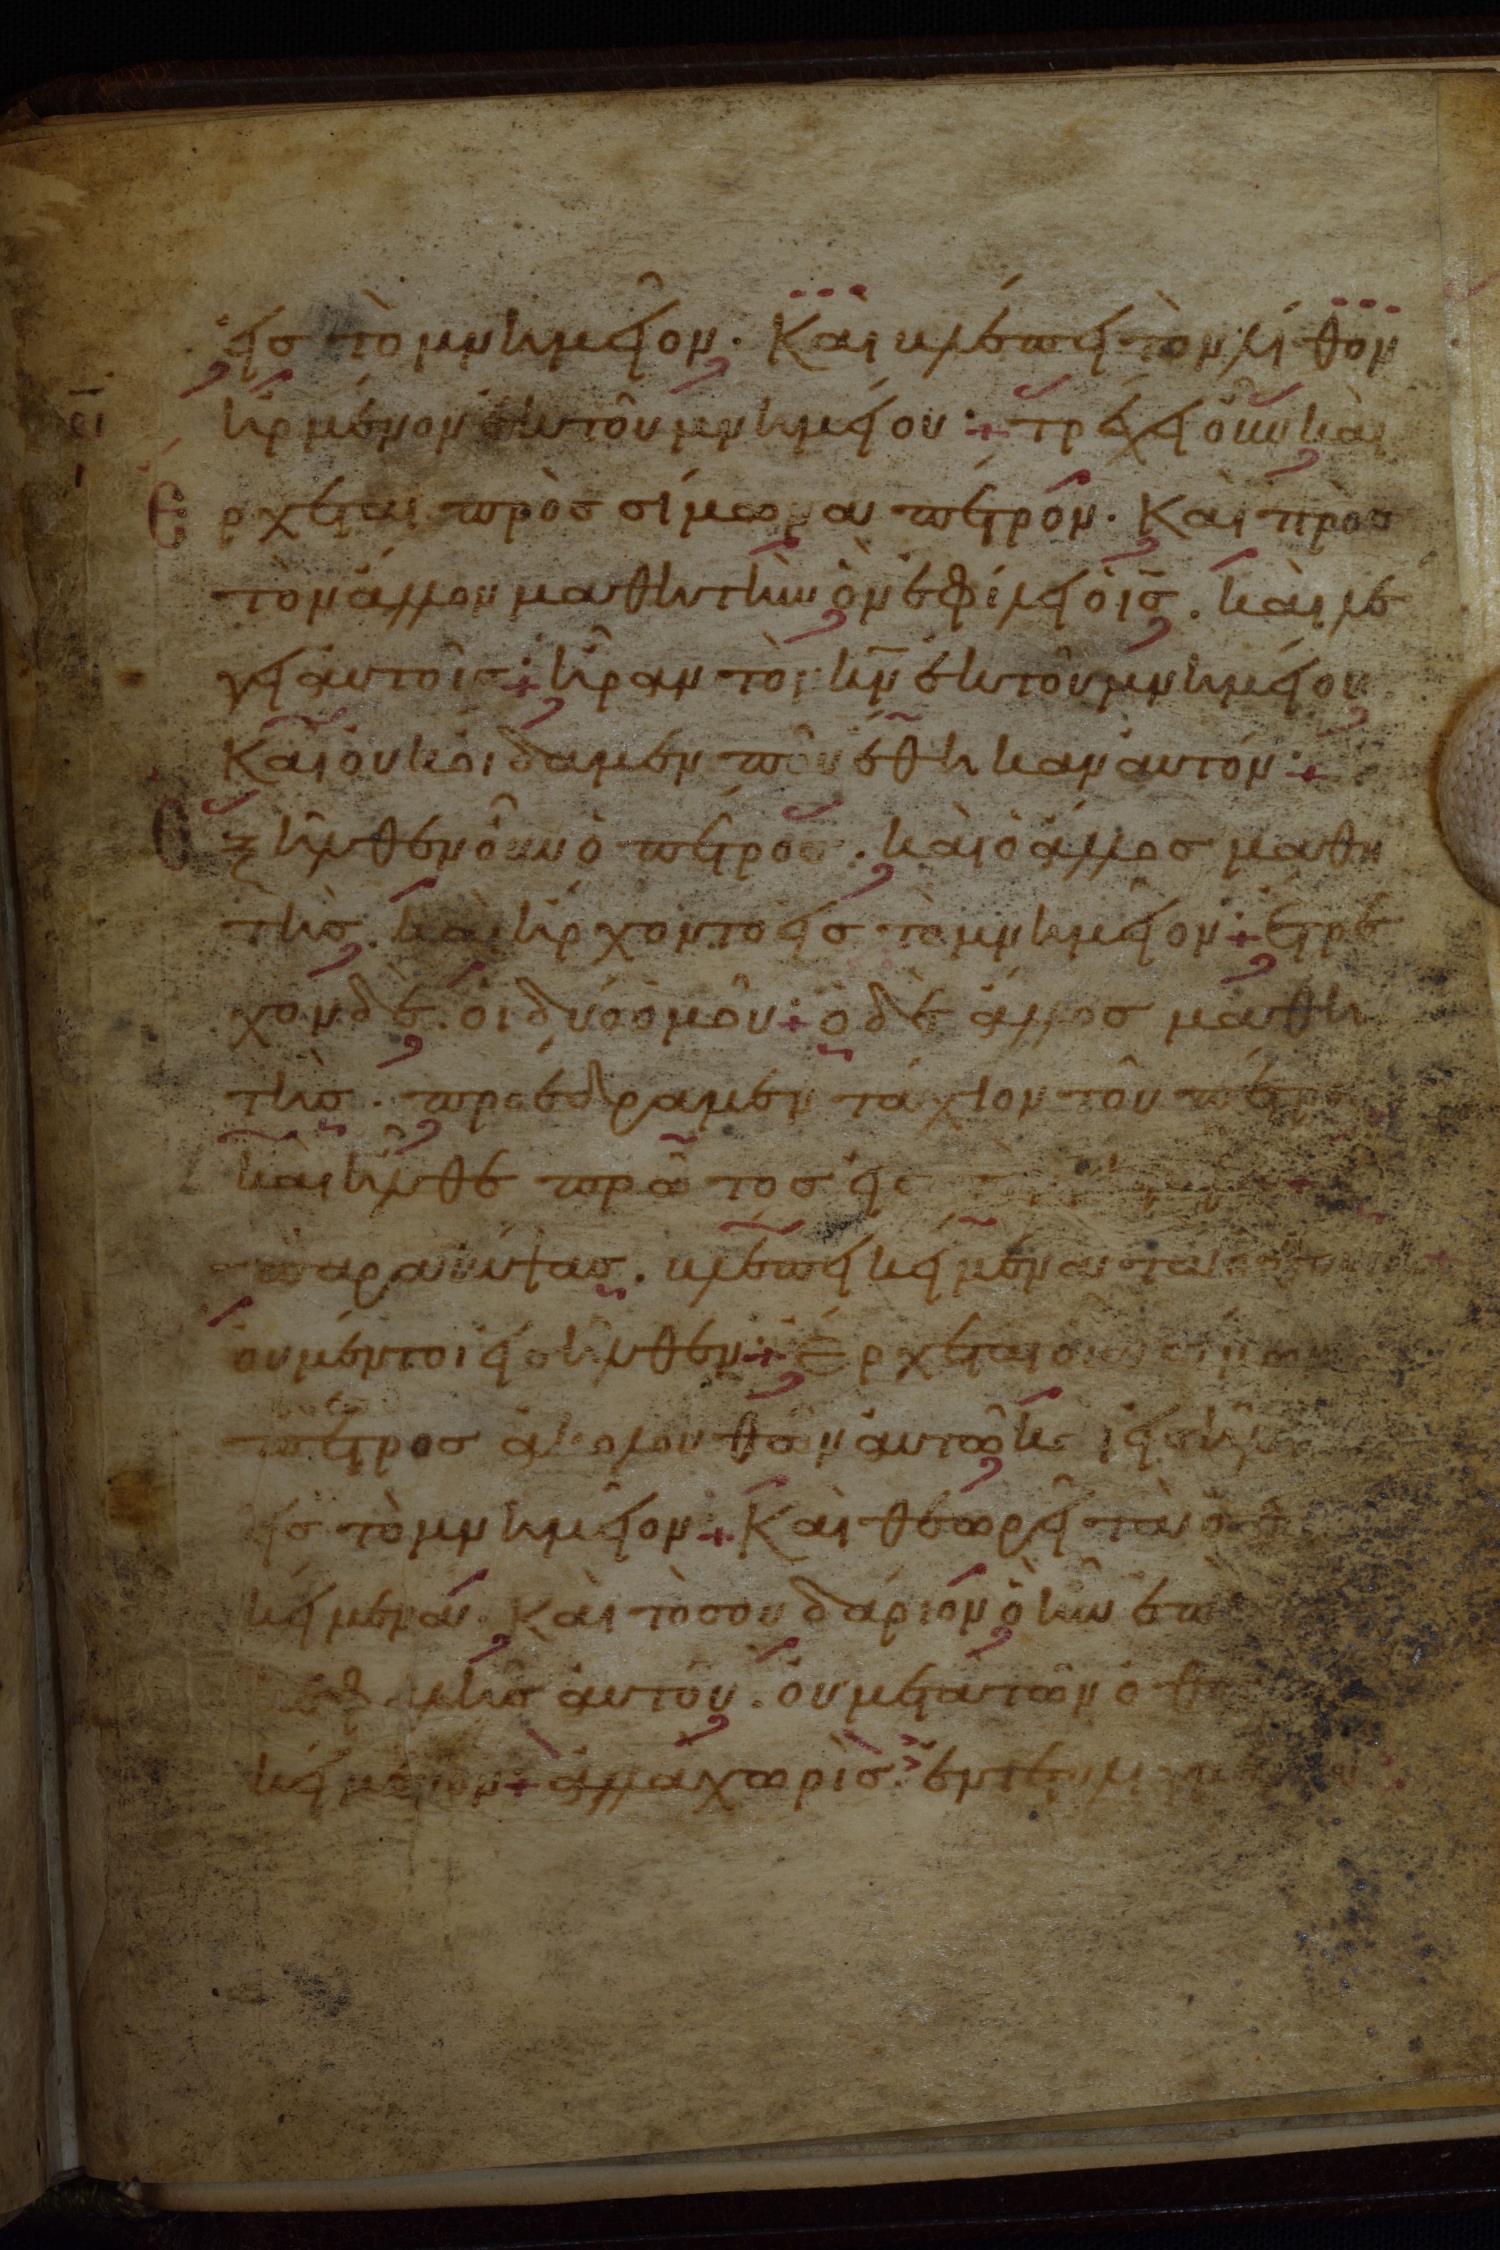 εἰς τὸ μνημεῖον. Καὶ βλέπει τὸν λίθον
ἠρμένον ἐκ τοῦ μνημείου· τρέχει οὖν καὶ
Ἔρχεται πρὸς σίμωνα πέτρον. Καὶ πρὸς
τὸν ἄλλον μαθητὴν ὃν ἐφίλει ὁ ισ̅. καὶ λέ
γει αὐτοῖς· ἦραν τὸν κ̅ν̅ ἐκ τοῦ μνημείου
Καὶ οὐκ οἴδαμεν ποῦ ἔθηκαν αὐτόν·
Ἐξῆλθεν οὖν ὁ πέτρος. καὶ ὁ ἄλλος μαθη
τής. καὶ ἤρχοντο εἰς τὸ μνημεῖον· ἔτρε
χον δὲ. οἱ δύο ὁμοῦ· ὁ δὲ ἄλλος μαθη
τής. προέδραμεν τάχιον τοῦ πέτρο
καὶ ἦλθε πρῶτος εἰς
παρακύψας. βλέπει κείμενα τὰ
οὐ μέντοι εἰσῆλθεν· Ἔρχεται οὖν σίμων
πέτρος ἀκολουθῶν αὐτῶ
εἰς τὸ μνημεῖον· Καὶ θεωρεῖ τὰ ὀθ
κείμενα. Καὶ τὸ σουδάριον ὃ ἦν ἐπ
κεφαλῆς αὐτοῦ. οὐ μετὰ τῶν ὀθο
κείμενον· ἀλλὰ χωρὶς. ἐντετυλιγμένον